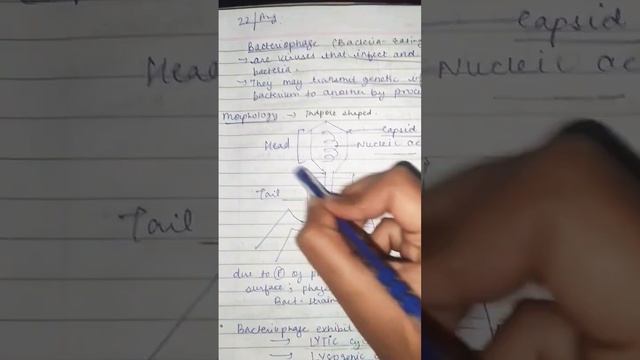 22/Aug.
Bacteriophage (Bacteria- eating
→ are viruses that infect and
bacteria.
→ They may transmit genetic
bacterium to another by proce
Morphology → Tadpole shaped.
Capsid
Head
Nucleic ac
Tail
due to (P) of p
surface; phag
Bact- strain
Bacteriophage exhibit
→ LYTIC cy
→ Lysogenic
Capsid
Head
Nucleic ac
Tail